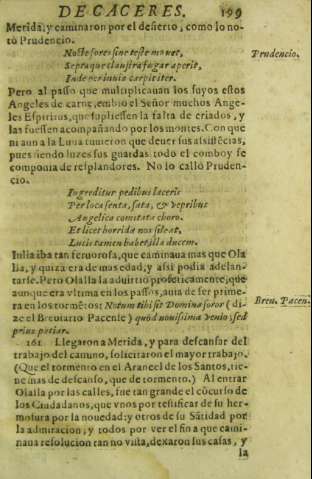 DE CACERES. 199
Merida, y caminaron por el desierto, como lo no-
tò Prudencio.
Nocte fores sine teste mouet,
Prudencio.
Septaque claustra fugax aperit,
Inde per inuia carpit iter.
Pero al passo que multiplicauan los suyos estos
Angeles de carne, embio el Señor muchos Ange-
les Espiritus, que supliessen la falta de criados, y
las fuessen acompañando por los montes. Con que
ni aun a la Luna tuuieron que deuer sus assistēcias,
pues siendo luzes sus guardas todo el comboy se
componia de resplandores. No lo callò Pruden-
cio.
Ingreditur pedibus laceris
Per loca senta, sata, & vepribus
Angelica comitata choro.
Et licet horrida nox sileat,
Lucis tamen habet illa ducem.
Iulia iba tan feruorosa, que caminaua mas que Ola
lla, y quiza era de mas edad, y assi podia adelan-
tarse. Pero Olalla la aduirtio profeticamente, q̃
aunque era vltima en los passos, auia de ser prime-
ra en los tormētos: Notum tibi sit Domina soror (di-
Breu. Pacen.
ze el Breuiario Pacense) quòd nouissima venio, sed
prius patiar.
161 Llegaron a Merida, y para descansar del
trabajo del camino, solicitaron el mayor trabajo.
(Que el tormento en el Arancel de los Santos, tie-
ne mas de descanso, que de tormento.) Al entrar
Olalla por las calles, fue tan grande el cōcurso de
los Ciudadanos, que vnos por testificar de su her-
mosura por la nouedad: y otros de su Sātidad por
la admiracion; y todos por ver el fin a que cami-
naua resolucion tan no vista, dexaron sus casas, y
la